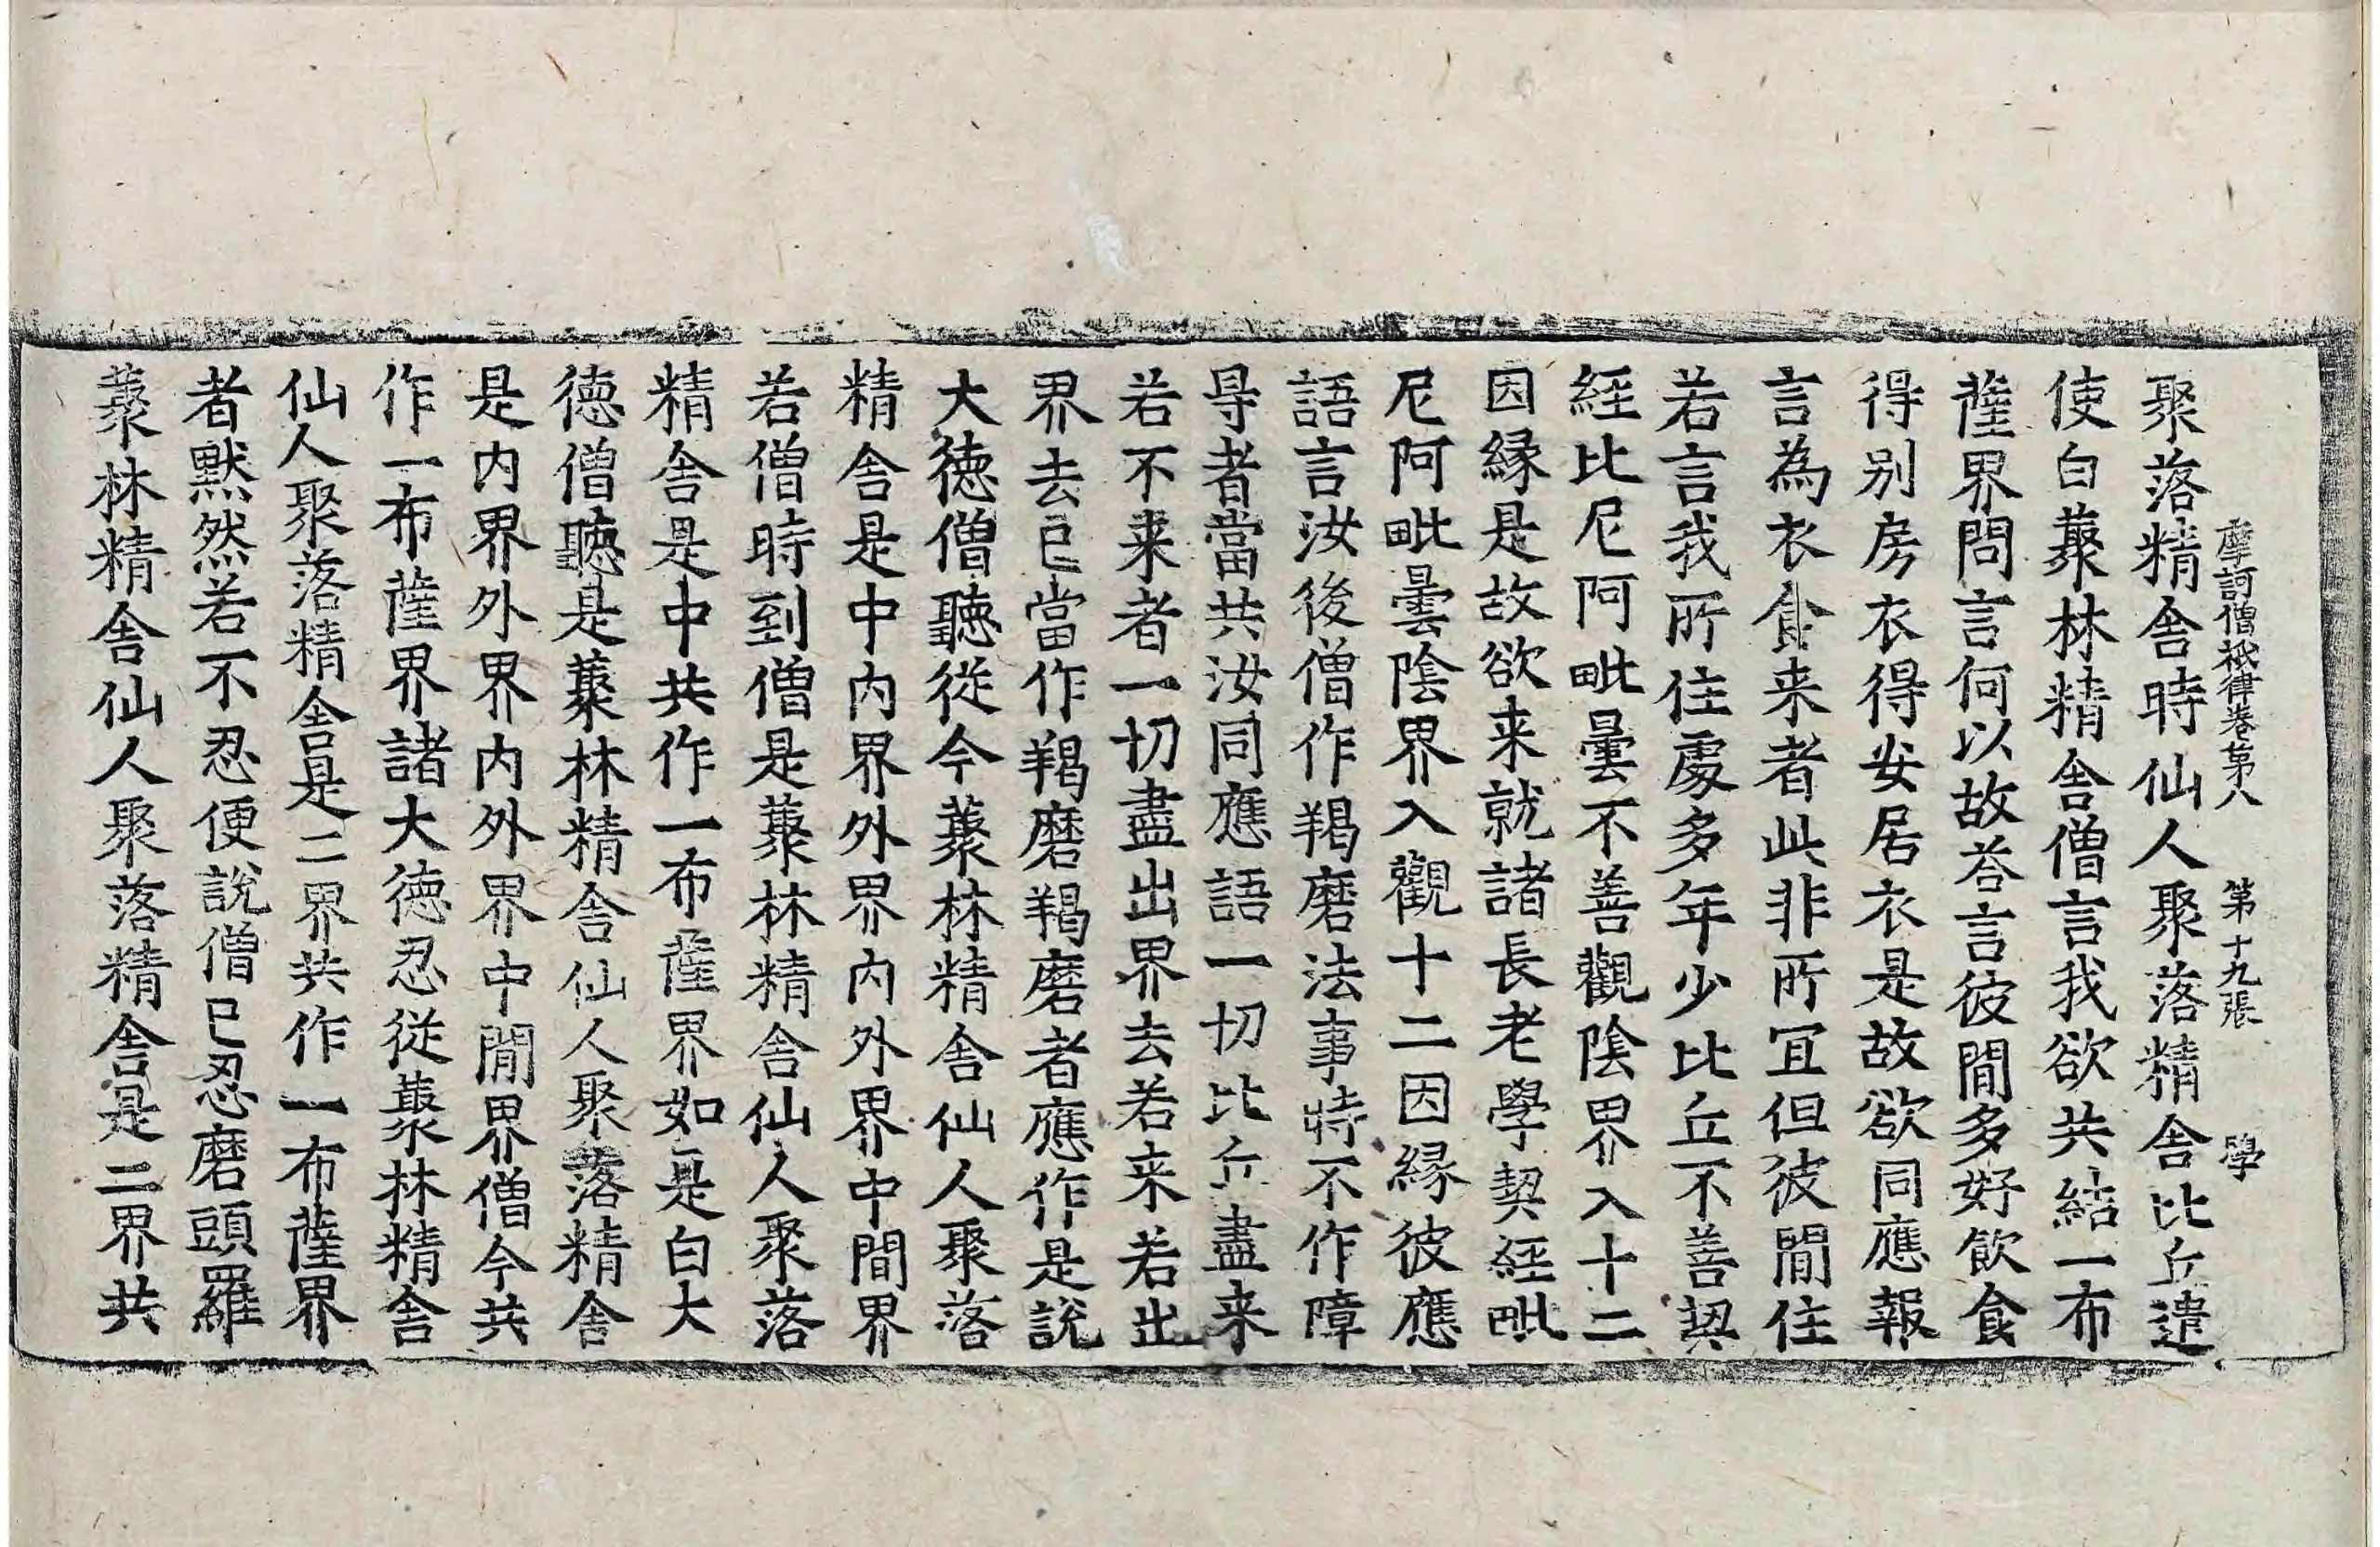 摩訶僧祇律卷第八　第十九張　學
聚落精舍時仙人聚落精舍比丘遣
使白藂林精舍僧言我欲共結一布
薩界問言何以故荅言彼閒多好飲食
得别房衣得安居衣是故欲同應報
言為衣食来者此非所冝但彼閒住
若言我所住處多年少比丘不善契
經比尼阿毗曇不善觀陰界入十二
因縁是故欲来就諸長老學契經毗
尼阿毗曇陰界入觀十二因縁彼應
語言汝後僧作羯磨法事時不作障
㝵者當共汝同應語一切比丘盡来
若不来者一切盡出界去若来若出
界去已當作羯磨羯磨者應作是說
大德僧聽從今藂林精舍仙人聚落
精舍是中內界外界內外界中間界
若僧時到僧是藂林精舍仙人聚落
精舍是中共作一布薩界如是白大
德僧聽是藂林精舍仙人聚落精舍
是內界外界內外界中閒界僧今共
作一布薩界諸大德忍從藂林精舍
仙人聚落精舍是二界共作一布薩界
者默然若不忍便說僧已忍磨頭羅
藂林精舍仙人聚落精舍是二界共